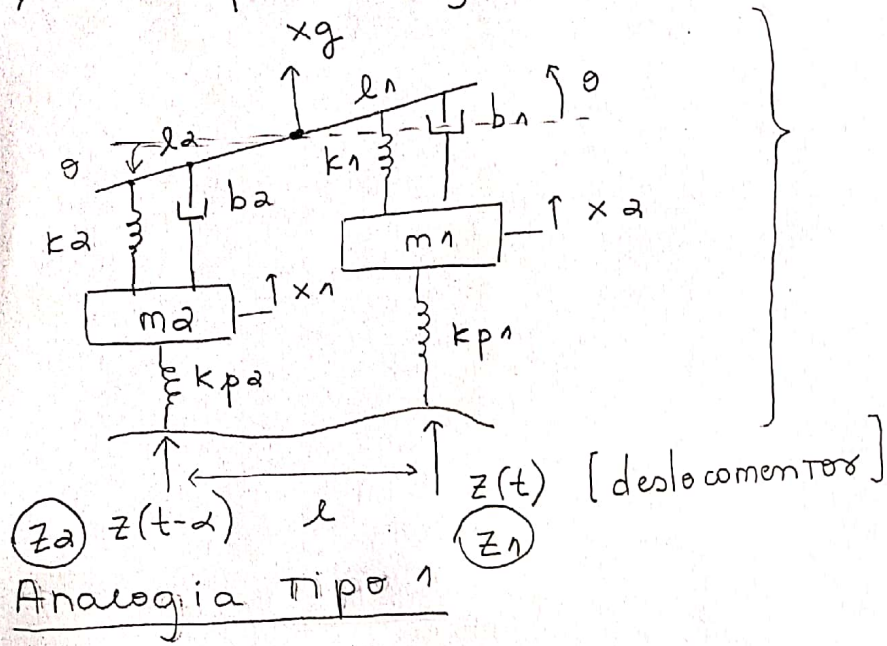 xg
l1
θ
b1
l2
θ
k1
b2
k2
x2
m1
x1
m2
kp1
kp2
z(t) [deslocamentos]
z(t-α)
l
Z2
Z1
Analogia Tipo 1